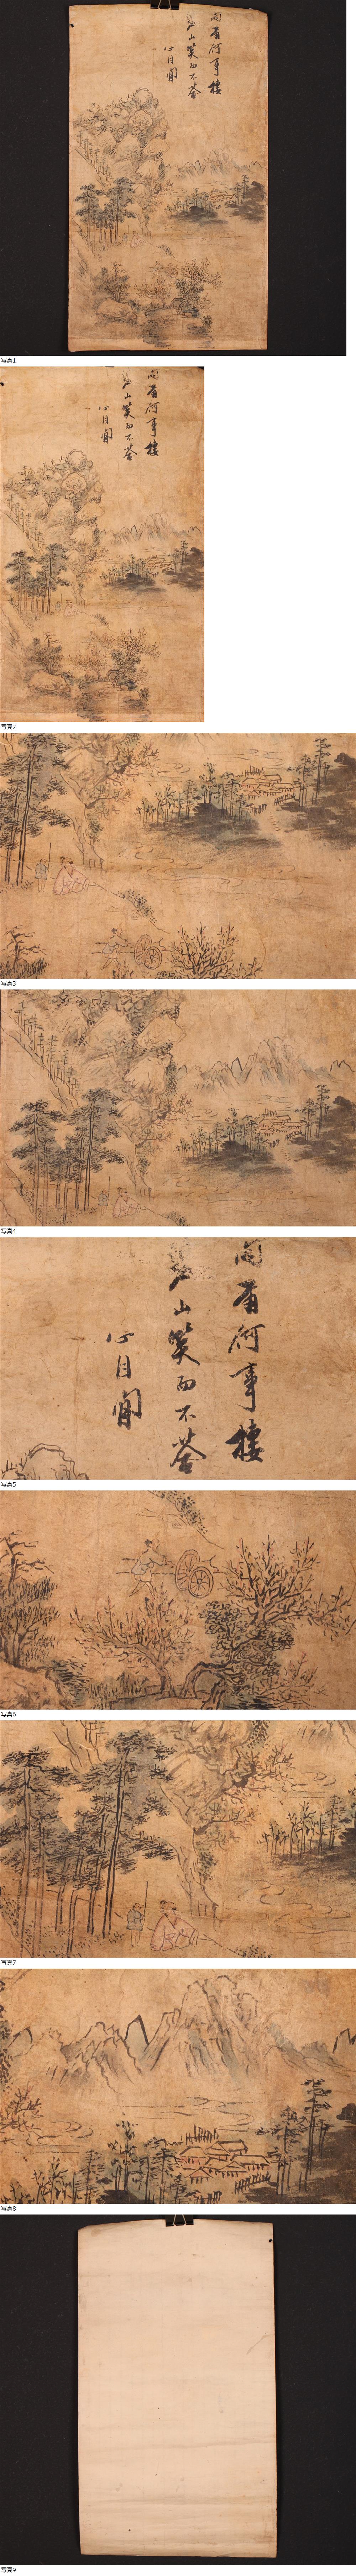 問何事棲
碧山笑而不荅
心自閒
写真1
問何事棲
碧山笑而不荅
心自閒
写真2
写真3
写真4
問何事棲
碧山笑而不荅
心自閒
写真5
写真6
写真7
写真8
写真9